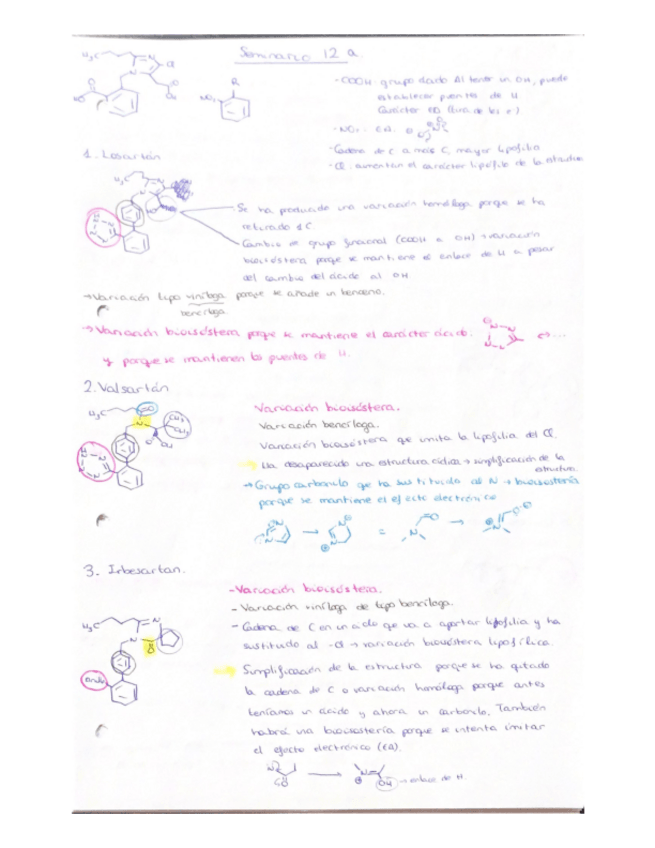 Seminario 12 a
-COOH: grupo ácido. Al tener un OH, puede
establecer puentes de H
Carácter
-NO₂: CA.
-Cadena de C a más C, mayor lipofilia
-Cl: aumentan el carácter lipófilo de la estructura
1.-Losartán
- Se ha producido una variación homóloga porque se ha
retirado 1 C.
- Cambio de grupo funcional (COOH a OH) → variación
bioisóstera porque se mantiene el enlace de H a pesar
del cambio del ácido al OH.
→ Variación tipo viníloga porque se añade un benceno.
benciloga
→ Variación bioisóstera porque se mantiene el carácter ácido.
y porque se mantienen los puentes de H.
2. Valsartán
Variación bioisóstera.
Variación benciloga.
Variación bioisóstera que imita la lipofilia del Cl.
Ha desaparecido una estructura cíclica → simplificación de la
estructura.
→ Grupo carbonilo que ha sustituido al N → bioisostería
porque se mantiene el efecto electrónico
3- Irbesartan.
- Variación bioisóstera.
- Variación viníloga de tipo benciloga.
- Cadena de C en un ciclo que va a aportar lipofilia y ha
sustituido al -Cl → variación bioisóstera lipofílica.
Simplificación de la estructura porque se ha quitado
la cadena de C o variación homóloga porque antes
teníamos un ácido y ahora un carbonilo. También
habrá una bioisostería porque se intenta imitar
el efecto electrónico (CA).
→ enlace de H.